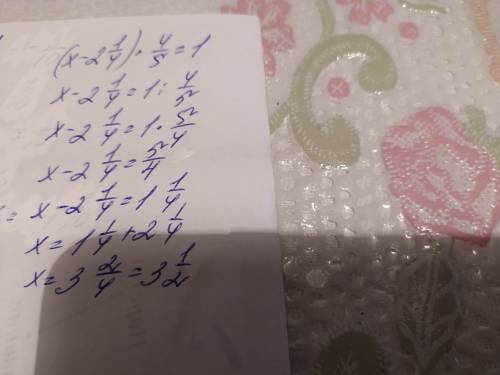 (x - 2 1/4) · 4/5 = 1
x - 2 1/4 = 1 : 4/5
x - 2 1/4 = 1 · 5/4
x - 2 1/4 = 5/4
= x - 2 1/4 = 1 1/4
x = 1 1/4 + 2 1/4
x = 3 2/4 = 3 1/2